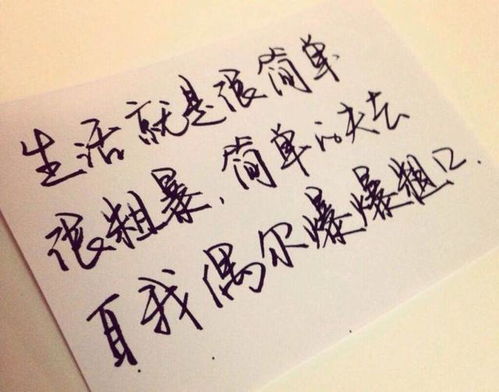 生活就是很简单
很粗暴.简单的失去
自我偶尔爆爆粗口.